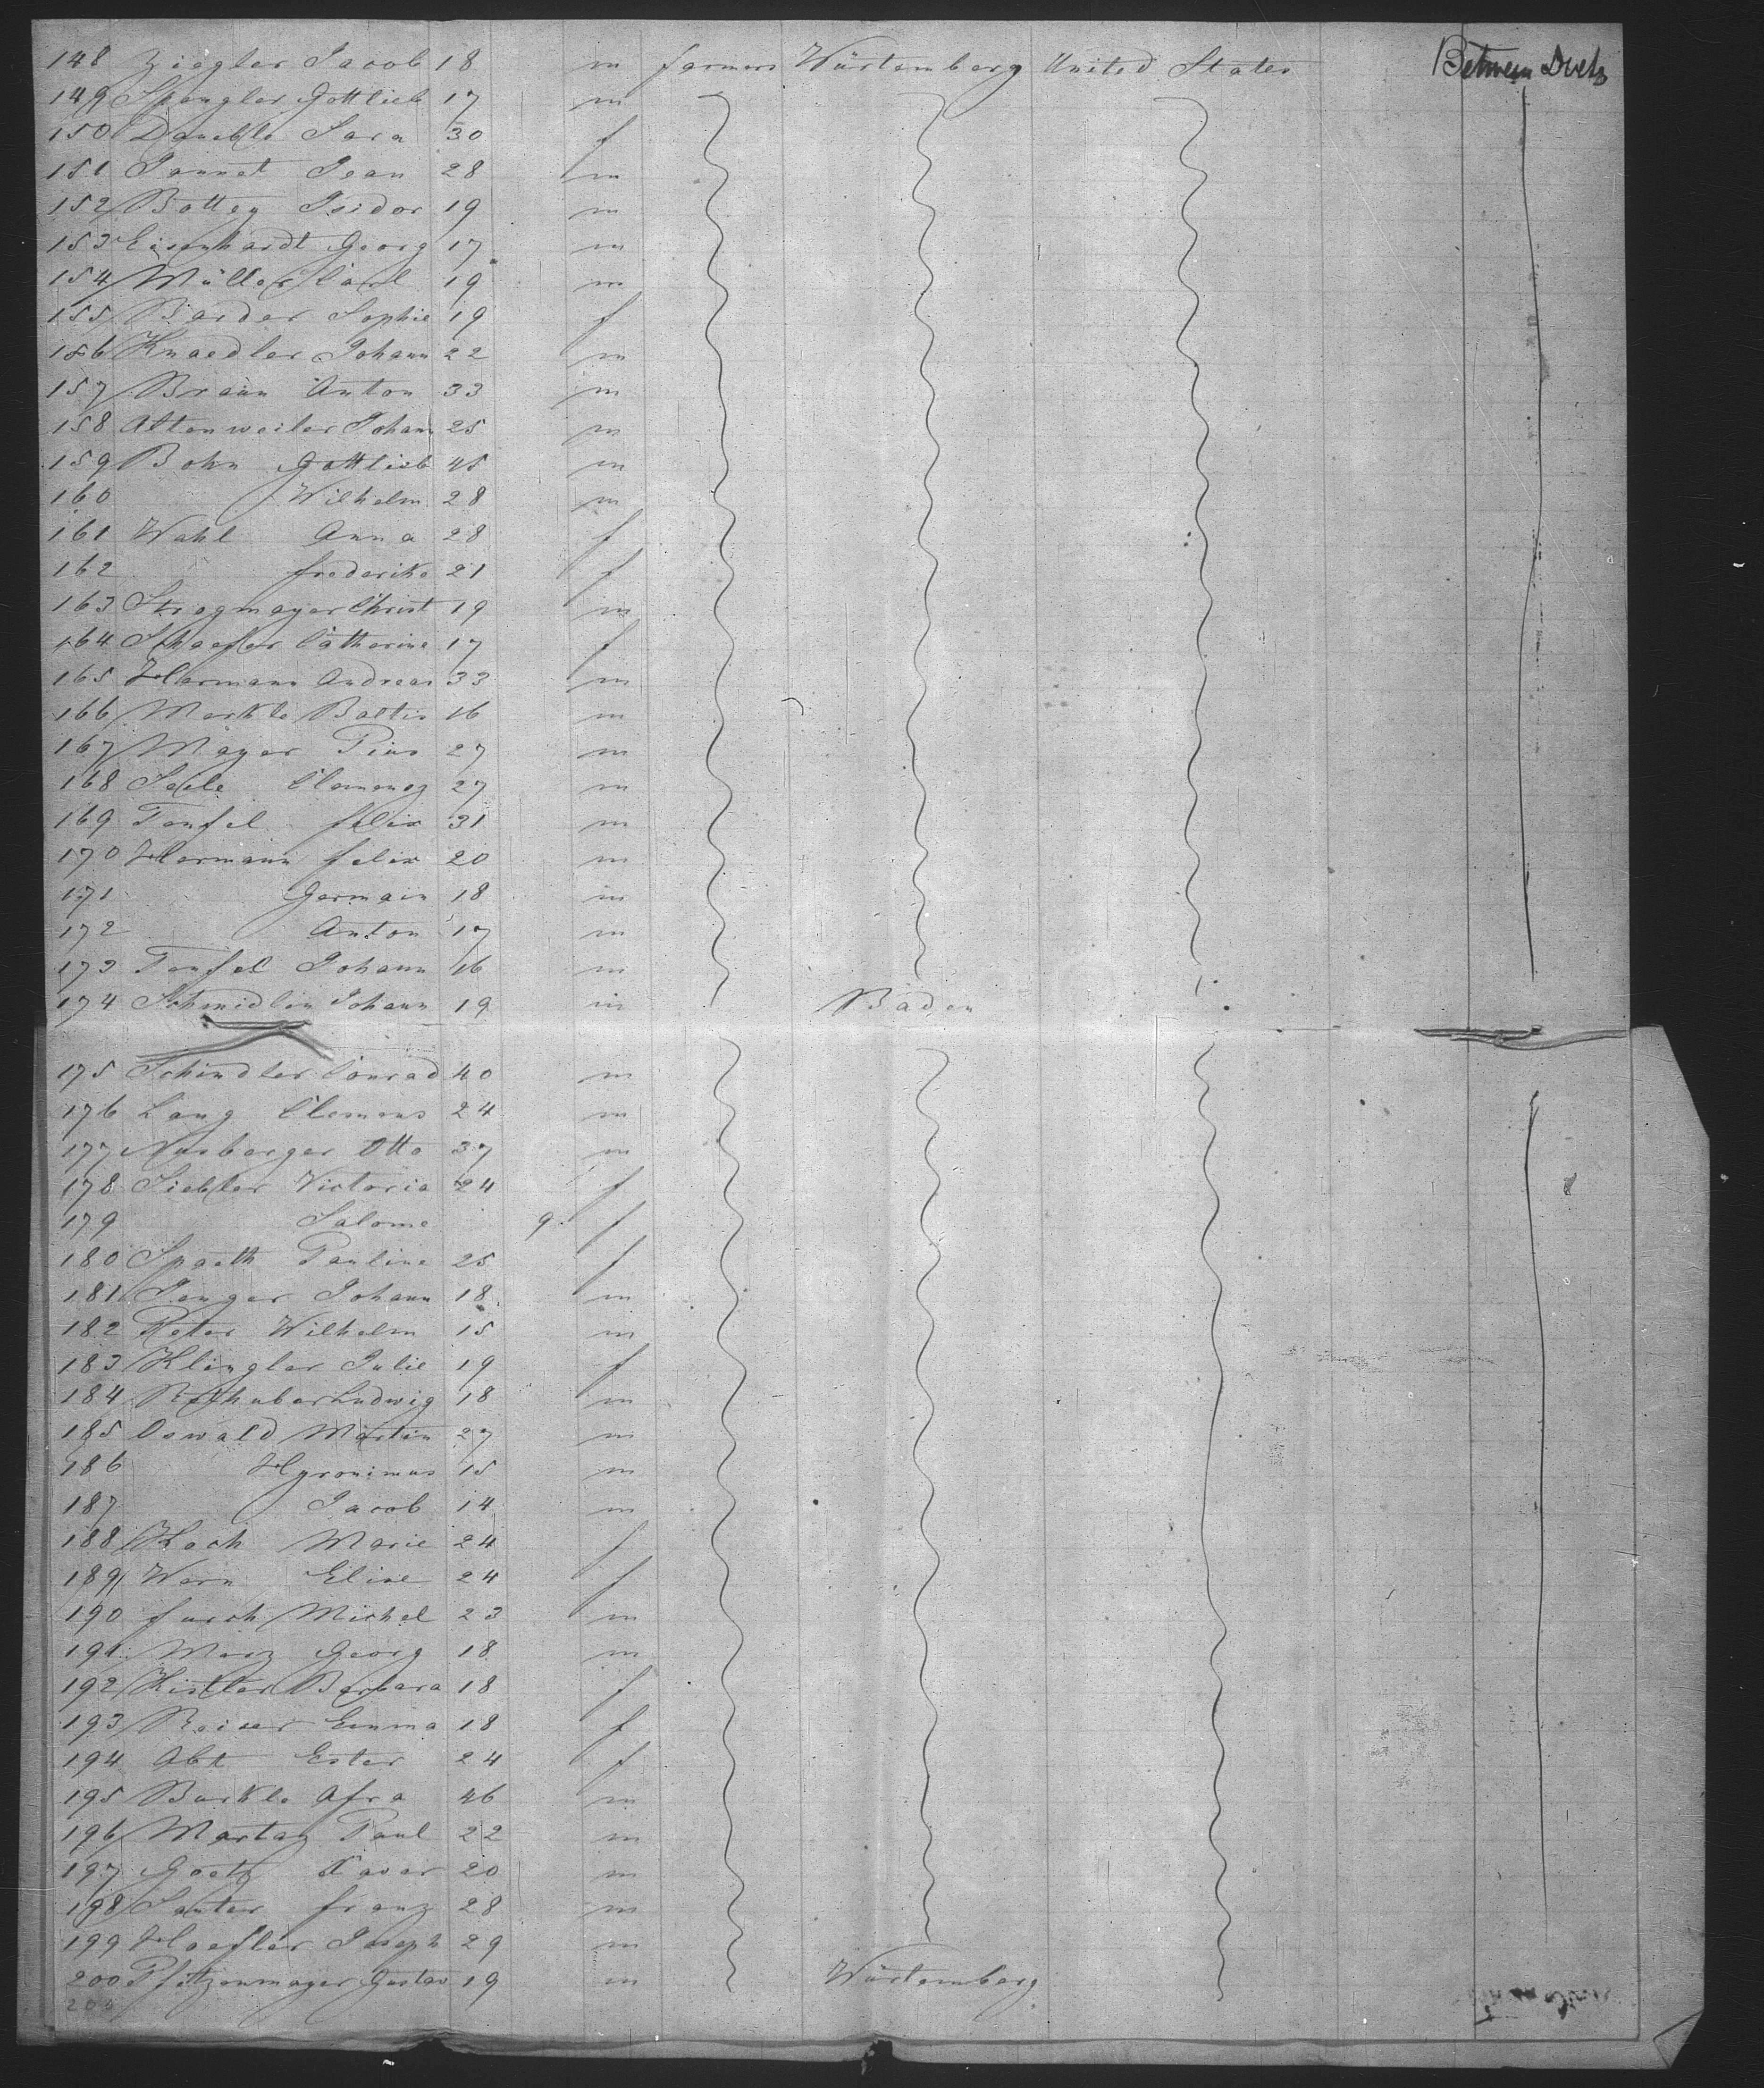 148 Ziegler Jacob 18 m farmers Würtemberg United States Between Decks
149 Spengler Gottlieb 17 m
150 Sara 30 f
151 Jannet Jean 28 m
152 Bottey Isidor 19 m
153 Eisenhardt Georg 17 m
154 Müller Carl 19 m
155 Barder Sophie 19 f
156 Knaedler Johann 22 m
157 Braun Anton 33 m
158 Attenweiler Johann 25 m
159 Bohn Gottlieb 45 m
160 Wilhelm 28 m
161 Wahl Anna 28 f
162 frederike 21 f
163 Stregmayer Christ 19 m
164 Schaefer Catherine 17 f
165 Hermann Andreas 33 m
166 Merkle Baltis 16 m
167 Mayer Pius 27 m
168 Clemenz 27 m
169 Teufel felix 31 m
170 Hermann felix 20 m
171 Germain 18 m
172 Anton 17 m
173 Teufel Johann 16 m
174 Schmidlin Johann 19 m Baden
175 Schindler Conrad 40 m
176 Lang Clemens 24 m
177 Nusberger Otto 37 m
178 Siebler Victoria 24 f
179 Salome 9 f
180 Spaeth Pauline 25 f
181 Senger Johann 18 m
182 Peter Wilhelm 15 m
183 Klingler Julie 19 f
184 Rothuber Ludwig 18 m
185 Oswald Martin 27 m
186 Hyronimus 15 m
187 Jacob 14 m
188 Koch Marie 24 f
189 Wern Elise 24 f
190 furch Michel 23 m
191 Merz Georg 18 m
192 Kistler Barbara 18 f
193 Reiser Emma 18 f
194 Abt Ester 24 f
195 Burkle Afra 46 m
196 Martay Paul 22 m
197 Goetz Xaver 20 m
198 Sauter franz 28 m
199 Hoefler Joseph 29 m
200 Pfitzenmayer Gustav 19 m Würtemberg
200